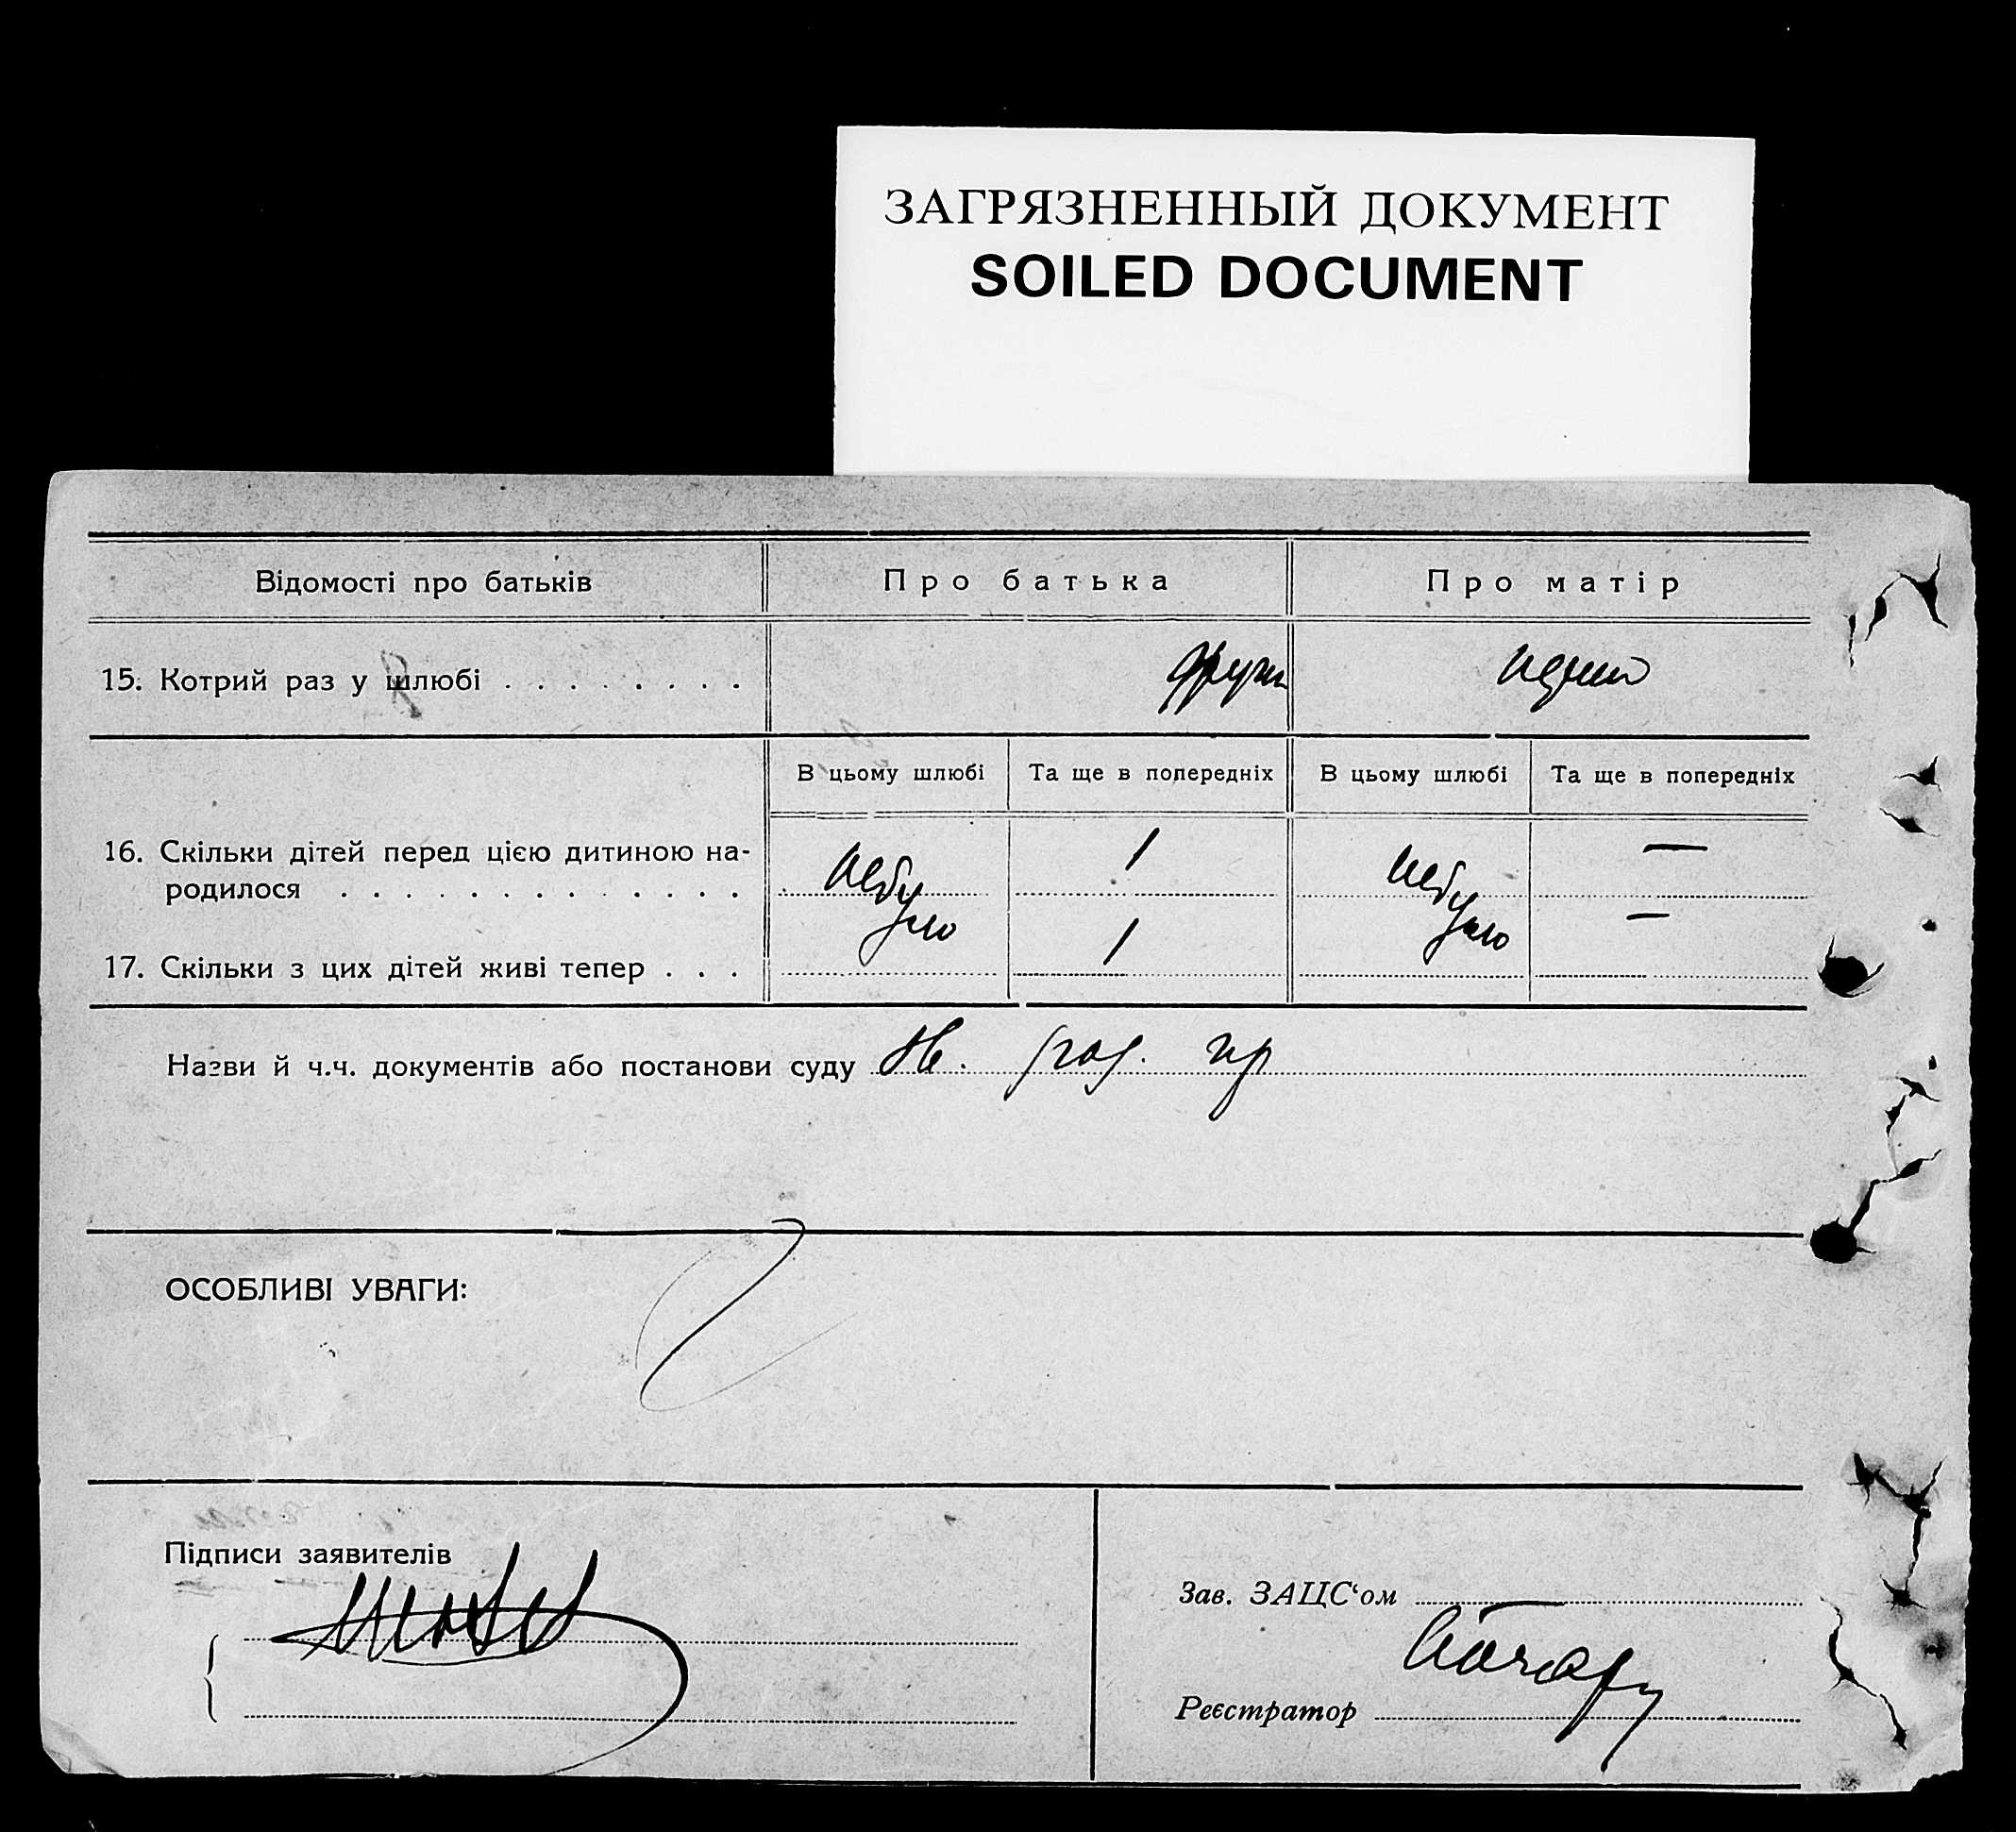 ЗАГРЯЗНЕННЫЙ ДОКУМЕНТ
SOILED DOCUMENT
Відомості про батьків Про батька Про матір
15. Котрий раз у шлюбі . . . . . . . .
В цьому шлюбі Та ще в попередніх В цьому шлюбі Та ще в попередніх
16. Скільки дітей перед цією дитиною на- 1 —
родилося . . . . . . . . . . . . . небуло небуло
17. Скільки з цих дітей живі тепер . . . 1 —
Назви й ч.ч. документів або постанови суду
ОСОБЛИВІ УВАГИ:
Підписи заявителів
Зав. ЗАЦС‘ом
Реєстратор